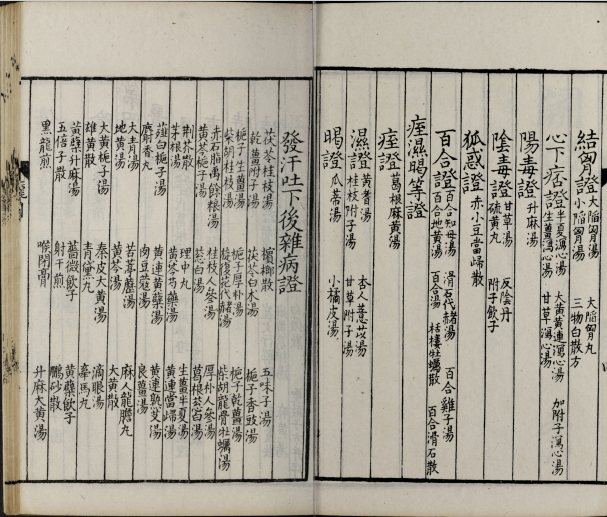 結胷證 大陷胷湯 小陷胷湯 大陷胷丸 三物白散方
心下痞證 半夏瀉心湯 生薑瀉心湯 大黃黃連瀉心湯 甘草瀉心湯 加附子瀉心湯
陽毒證 升麻湯
陰毒證 甘草湯 硫黃丸 反陰丹 附子飲子
狐惑證 赤小豆當歸散
百合證 百合知母湯 百合地黃湯 滑石代赭湯 百合湯 栝樓牡蠣散 百合雞子湯 百合滑石散
痓濕暍等證
痓證 葛根麻黃湯
濕證 黃耆湯 桂枝附子湯 杏人薏苡湯 甘草附子湯
暍證 瓜蒂湯 小橘皮湯
發汗吐下後雜病證
茯苓桂枝湯 檳榔散 五味子湯
乾薑附子湯 茯苓白朮湯 梔子香豉湯
梔子生薑湯 梔子厚朴湯 梔子乾薑湯
柴胡桂枝湯 旋復花代赭湯 柴胡龍骨牡蠣湯
赤石脂禹餘粮湯 桂枝人參湯 厚朴人參湯
黃芩梔子湯 葱白湯 葛根葱白湯
荆芥散 理中丸 生薑半夏湯
茅根湯 黃芩芍藥湯 黃連當歸湯
薤白梔子湯 黃連黃蘗湯 黃連熟艾湯
麝香丸 肉豆蔻湯 良薑湯
大青湯 苦葶藶湯 麻人龍膽丸
地黃湯 黃芩湯 大黃散
大黃梔子湯 秦皮大黃湯 滴眼湯
雄黃散 青黛丸 馬丸
黃蘗升麻湯 薔薇飲子 黃蘗飲子
五倍子散 射干煎 鵬砂散
黑龍煎 喉閉膏 升麻大黃湯